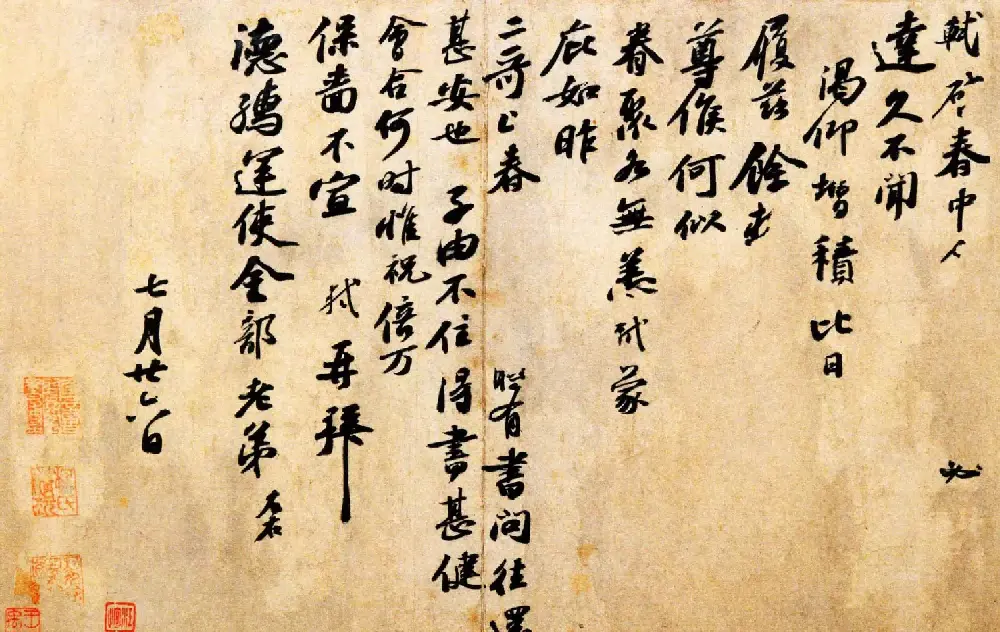 軾啓春中人 必
達久不聞
渴仰增積比日
履茲餘
尊候何似
眷聚各無恙軾蒙
庇如昨
二哥上春 有書問往還
甚安也 子由不住得書甚健
會合何時惟祝倍万
保嗇不宣 軾再拜
德孺運使金部老弟 左右
七月廿六日